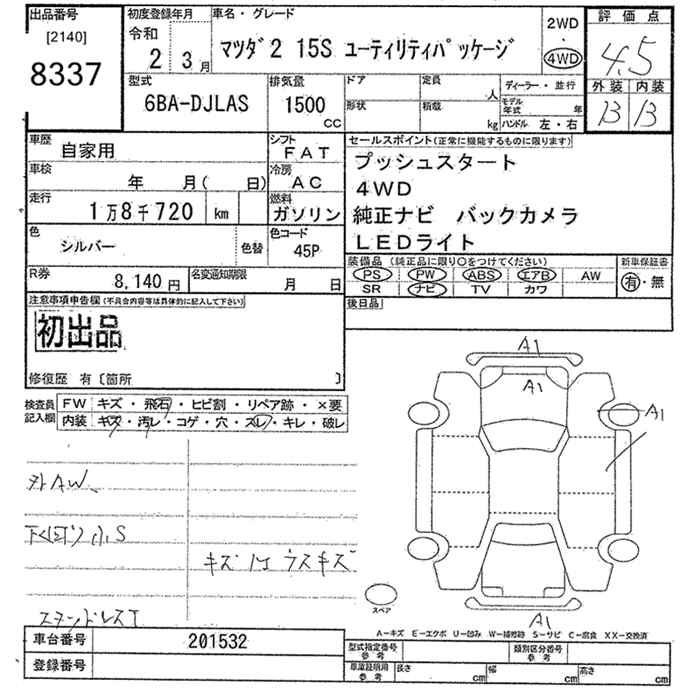 出品番号
[2140]
8337
初度登録年月
令和
2 3月
車名・グレード
マツダ2 15S ユーティリティパッケージ
2WD
・
4WD
評価点
4.5
外装 内装
B B
型式
6BA-DJLAS
排気量
1500
cc
ドア 定員 人
形状 積載 kg
ディーラー・並行
モデル年式 年
ハンドル 左・右
車歴
自家用
シフト
FAT
車検
年 月( 日)
冷房
AC
走行
1万8千720 km
燃料
ガソリン
色
シルバー
色替
色コード
45P
R券
8,140円
名変通知期限
月 日
セールスポイント(正常に機能するものに限ります)
プッシュスタート
4WD
純正ナビ バックカメラ
LEDライト
装備品(純正品に限り○をつけてください)
PS PW ABS エアB AW
SR ナビ TV カワ
新車保証書
有・無
後日品
注意事項申告欄(不具合内容等は具体的に記入して下さい)
初出品
修復歴 有〔箇所 〕
検査員記入欄
FW キズ・飛石・ヒビ割・リペア跡・×要
内装 キズ・汚レ・コゲ・穴・スレ・キレ・破レ
外AW、
下(サビ)小S
キズ 1ケ ウスキズ
A1
A1
A1
A1
スペア
A−キズ E−エクボ U−凹み W−補修跡 S−サビ C−腐食 XX−交換済
車台番号 201532
登録番号
型式指定番号参考
類別区分番号参考
車庫証明用参考
長さ cm 幅 cm 高さ cm